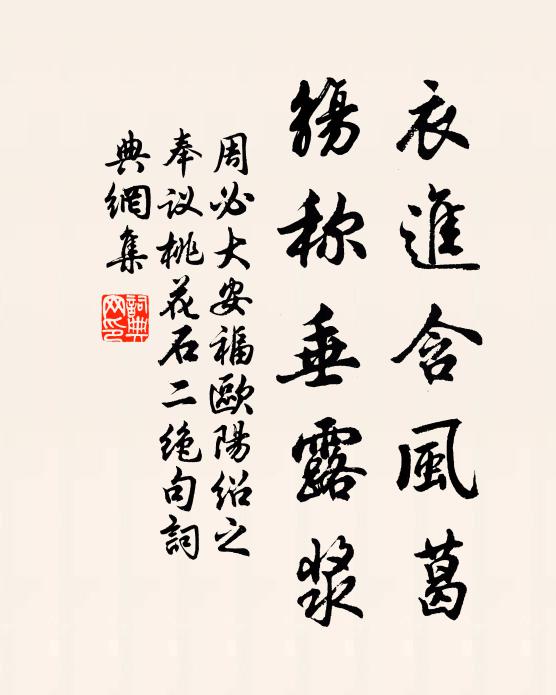 衣進含風葛
觴称垂露漿
周必大安福歐陽绍之
奉议桃花石二绝句詞
典網集
詞典网印